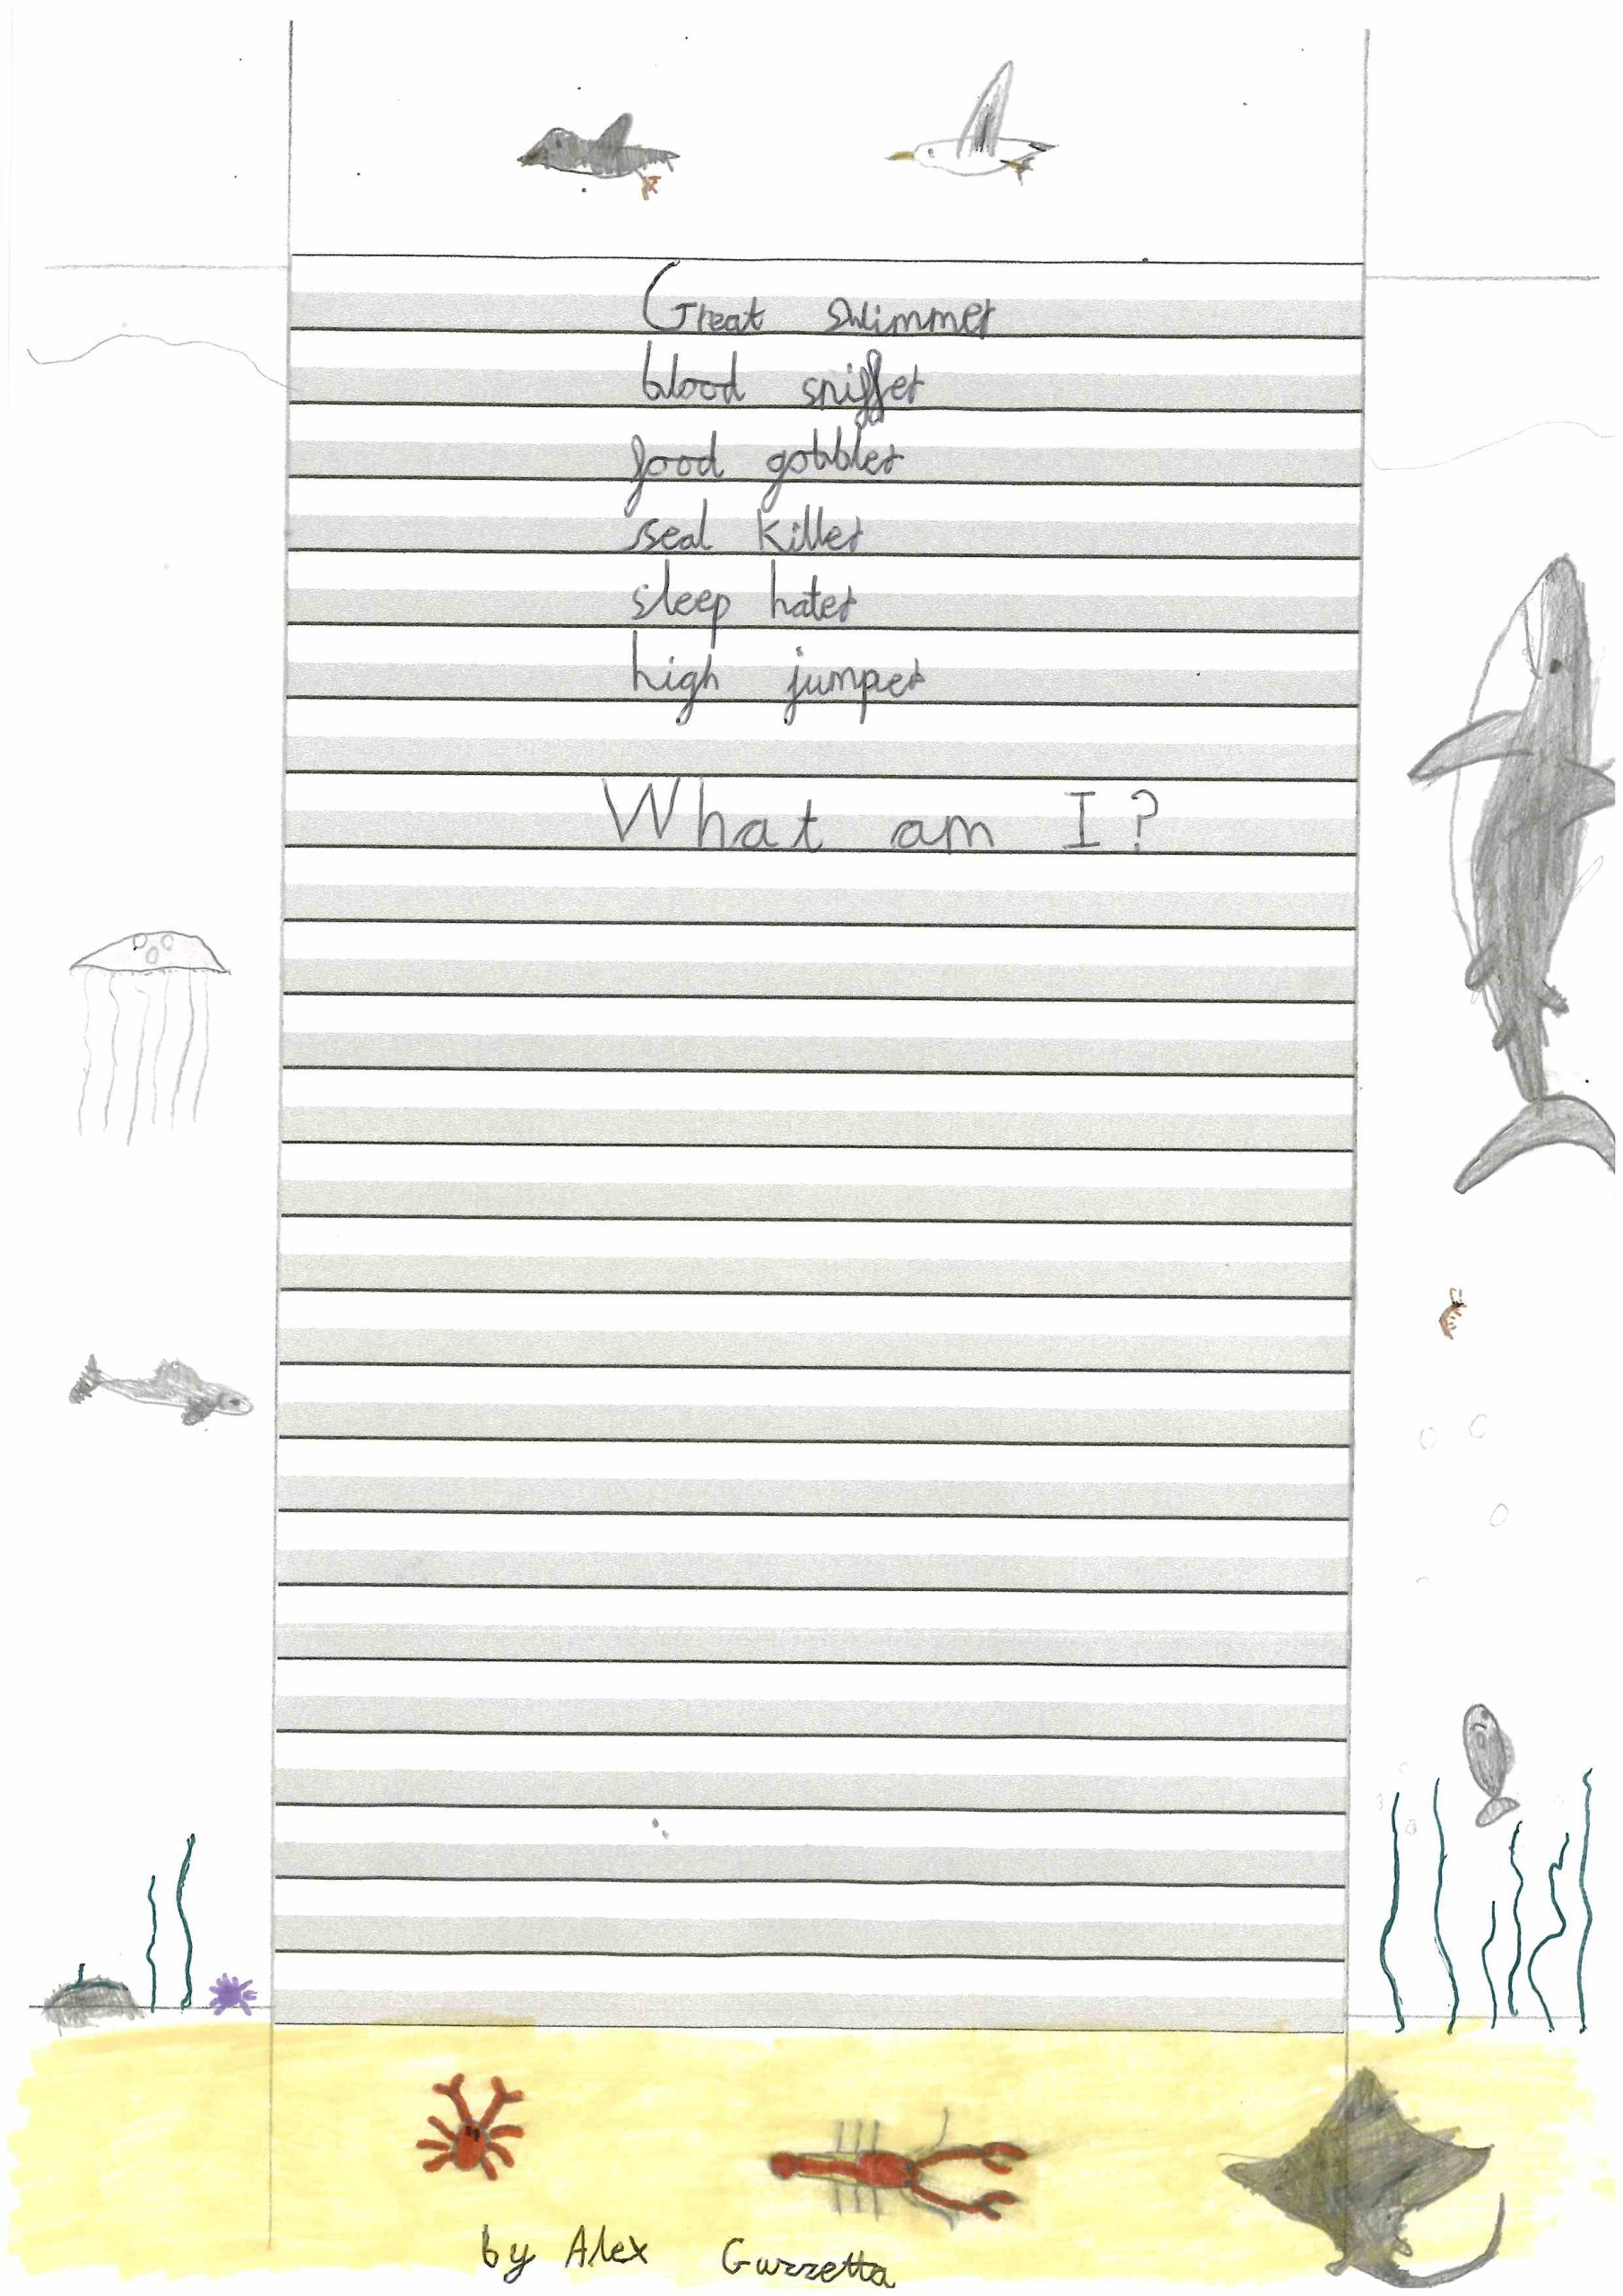 Great swimmer
blood sniffer
food gobbler
seal killer
sleep hater
high jumper
What am I?
by Alex Guzzetta